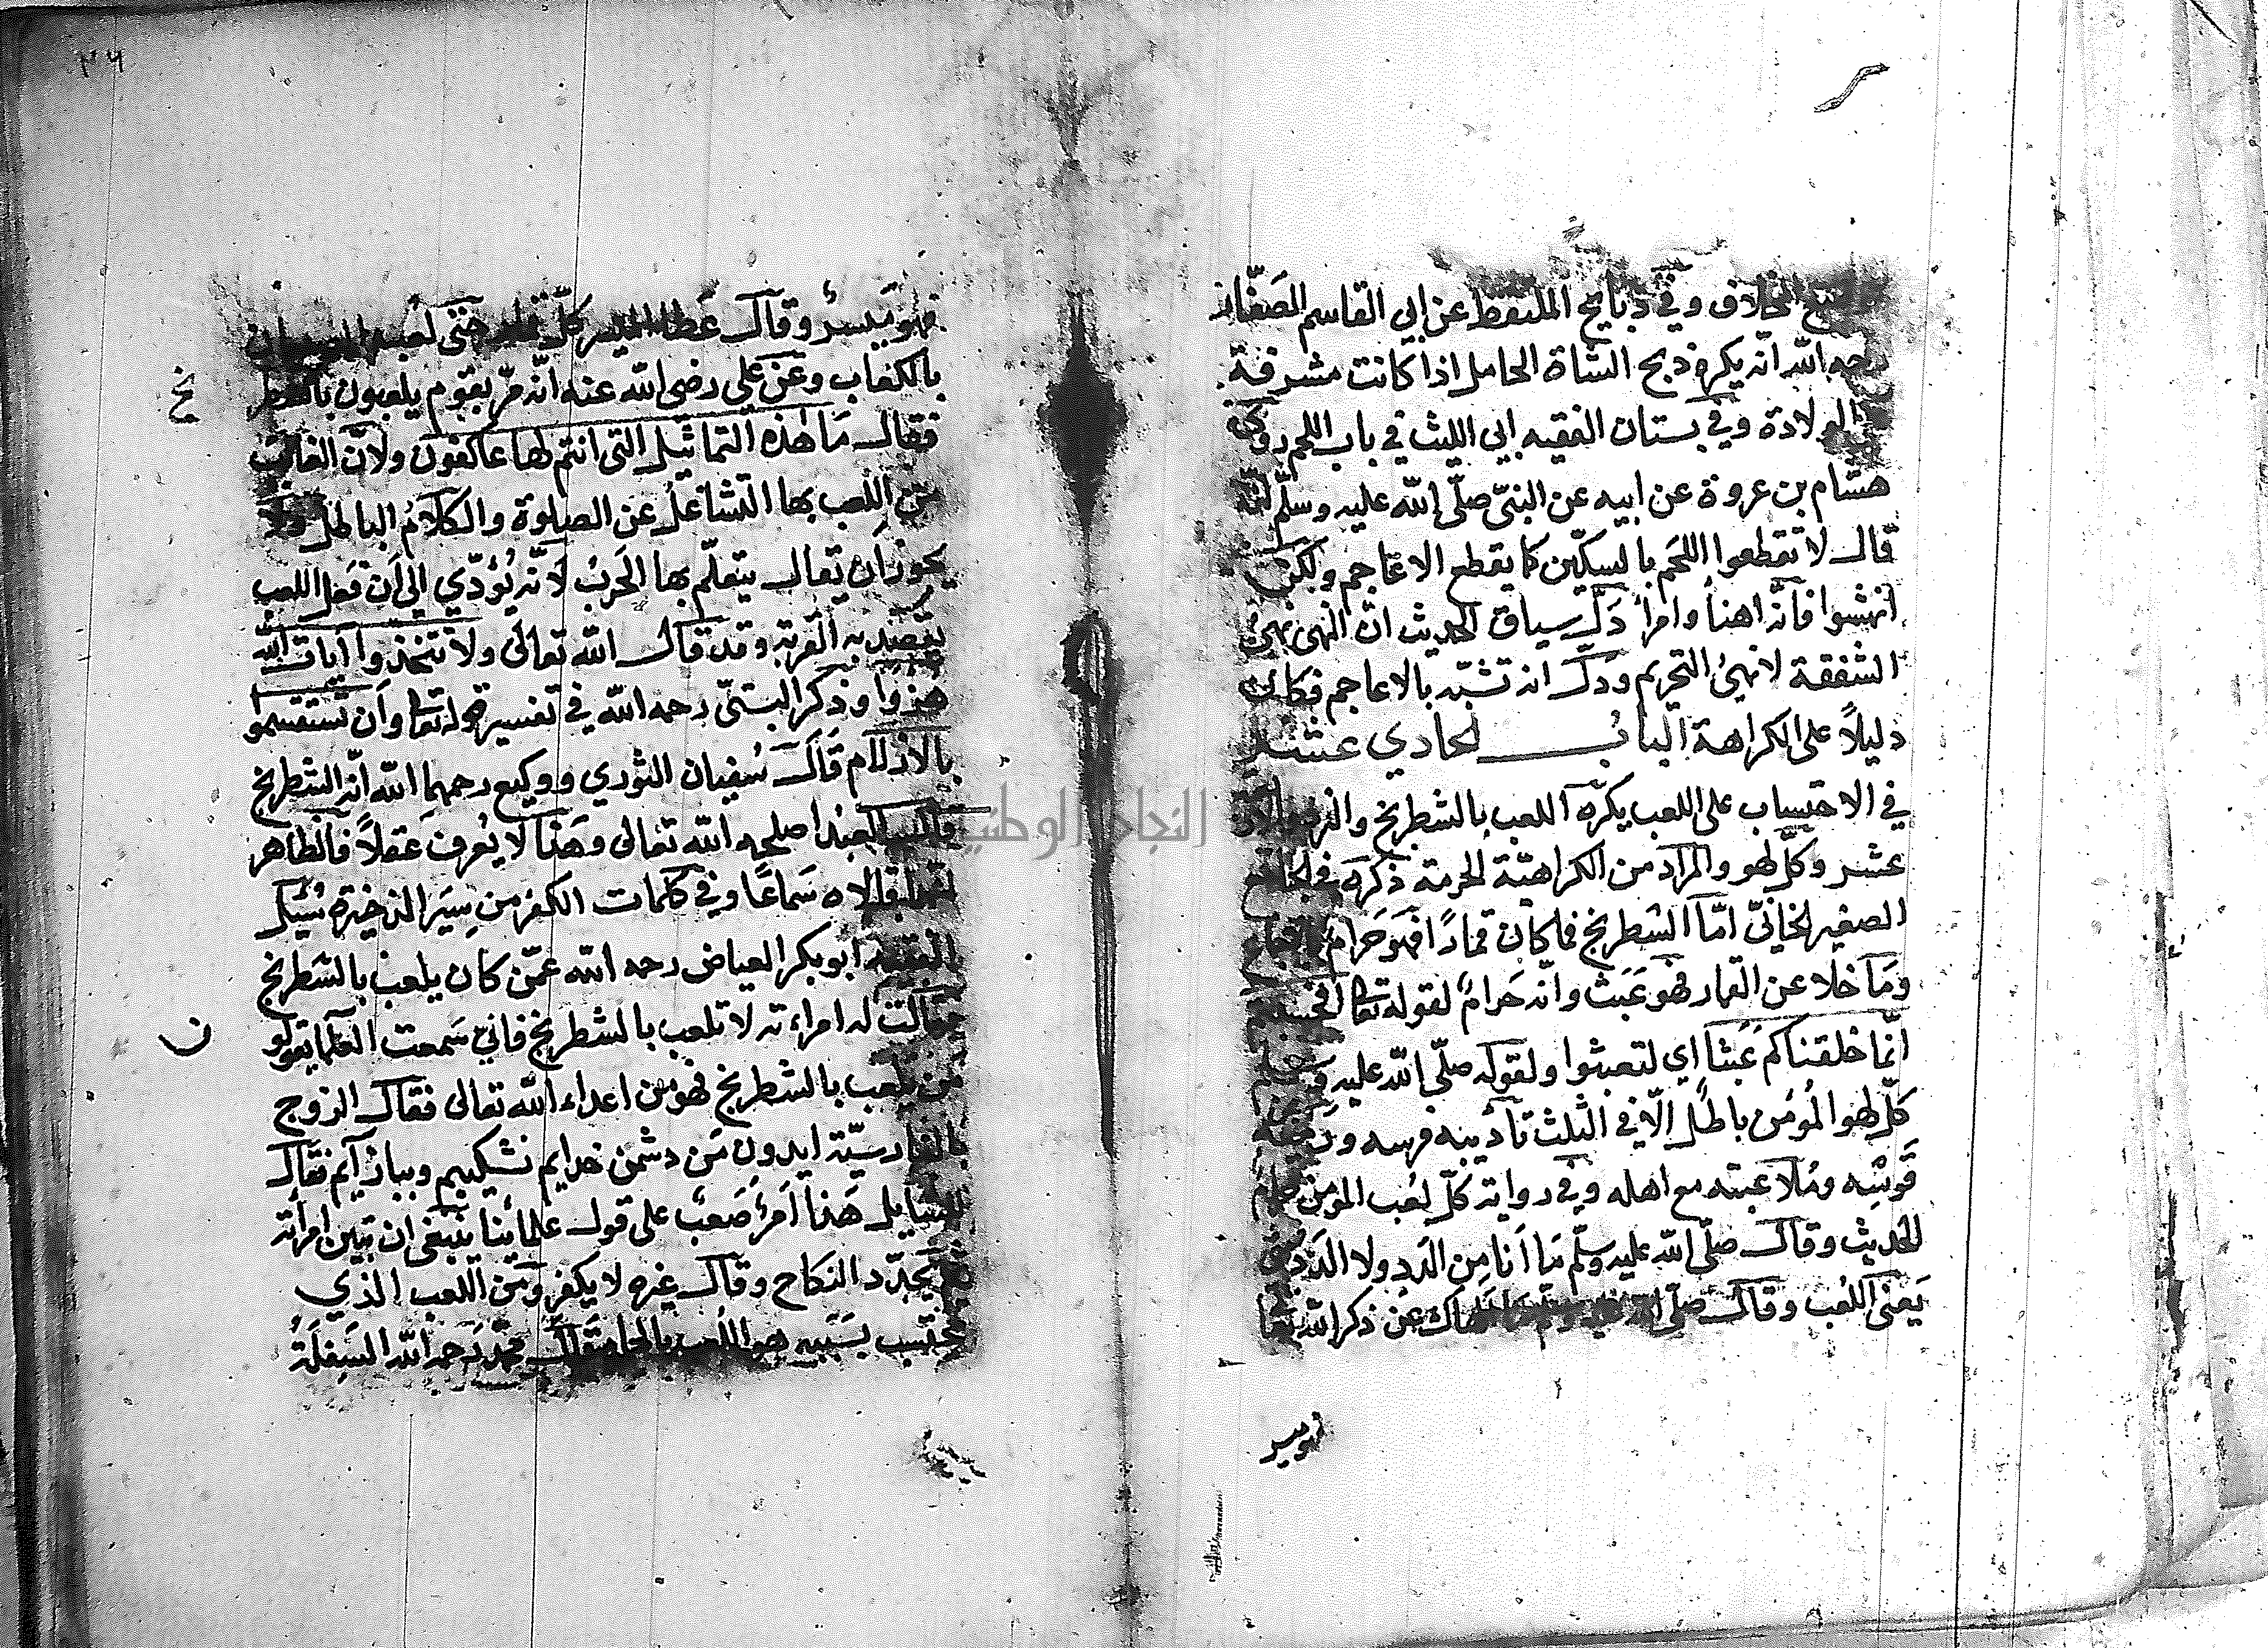 الخلاف وفي ذبايح الملتقط عن ابي القاسم الصفار
رحمه الله انه يكره ذبح الشاة الحامل اذا كانت مشرفة
الولادة وفي بستان الفقيه ابي الليث في باب اللحم روى
هشام بن عروة عن ابيه عن النبي صلى الله عليه وسلم انه
قال لا تقطعوا اللحم بالسكين كما يقطع الاعاجم ولكن
انهشوا فانه اهنأ وامرأ دل سياق الحديث ان النهى نهى
الشفقة لا نهى التحريم ودل انه تشبه بالاعاجم فكان
دليلاً على الكراهة الباب الحادي عشر
في الاحتساب على اللعب يكره اللعب بالشطرنج والنرد
عشر وكل لهو والمراد من الكراهية الحرمة ذكره في الجامع
الصغير الخاني اما الشطرنج فما كان قماراً فهو حرام
وما خلا عن القمار فهو عبث وانه حرام لقوله تعالى افحسبتم
انما خلقناكم عبثا اي لتعبثوا ولقوله صلى الله عليه وسلم
كل لهو المؤمن باطل الا في الثلث تأديبه فرسه
قوسه وملاعبته مع اهله وفي رواية كل لعب المؤمن حرام
الحديث وقال صلى الله عليه وسلم ما أنا من الدد ولا الدد مني
يعنى اللعب وقال صلى الله عليه وسلم ما الهاك عن ذكر الله تعا
فهو ميسر
٣٦
فهو ميسر وقال عطا الميسر كل قمار حتى لعب الصبيان
بالكعاب وعن علي رضى الله عنه انه مر بقوم يلعبون بالشطر
نج
فقال ما هذه التماثيل التى انتم لها عاكفون ولان الغالب
من اللعب بها التشاغل عن الصلوة والكلام الباطل ولا
يجوز ان يقال يتعلم بها الحرب لانه يؤدي الى ان فعل اللعب
يقصد به القربة وقد قال الله تعالى ولا تتخذوا آيات الله
هزوا وذكر البستى رحمه الله في تفسير قوله تعا وان تستقسموا
بالازلام قال سفيان الثوري ووكيع رحمهما الله انه الشطرنج
قال العبد اصلحه الله تعالى وهذا لا يعرف عقلاً فالظاهر
انهما قالاه سماعًا وفي كلمات الكفر من سير الذخيرة سئل
الفقيه ابو بكر العياض رحمه الله عمن كان يلعب بالشطرنج
فقالت له امراءته لا تلعب بالشطرنج فاني سمعت العلما يقولو
ن
من يلعب بالشطرنج فهو من اعداء الله تعالى فقال الزوج
بالفارسية ايدون من دشمن خدايم نشكيبم وبباز آيم فقال
للسايل هذا أمر صعب على قول علمائنا ينبغى ان تبين امرأته
ثم يجدد النكاح وقال غيره لا يكفر ومن اللعب الذي
يحتسب بسببه هو اللعب بالحمام قال محمد رحمه الله السفلة
النجاح الوطنية